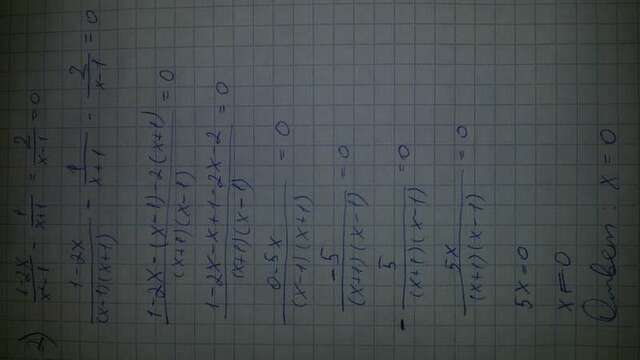 2) (1-2x)/(x²-1) - 1/(x+1) = 2/(x-1) = 0
(1-2x)/((x-1)(x+1)) - 1/(x+1) - 2/(x-1) = 0
(1-2x-(x-1)-2(x+1))/((x+1)(x-1)) = 0
(1-2x-x+1-2x-2)/((x+1)(x-1)) = 0
(0-5x)/((x-1)(x+1)) = 0
-5/((x+1)(x-1)) = 0
- 5/((x+1)(x-1)) = 0
5x/((x+1)(x-1)) = 0
5x=0
x=0
Ответ: x=0